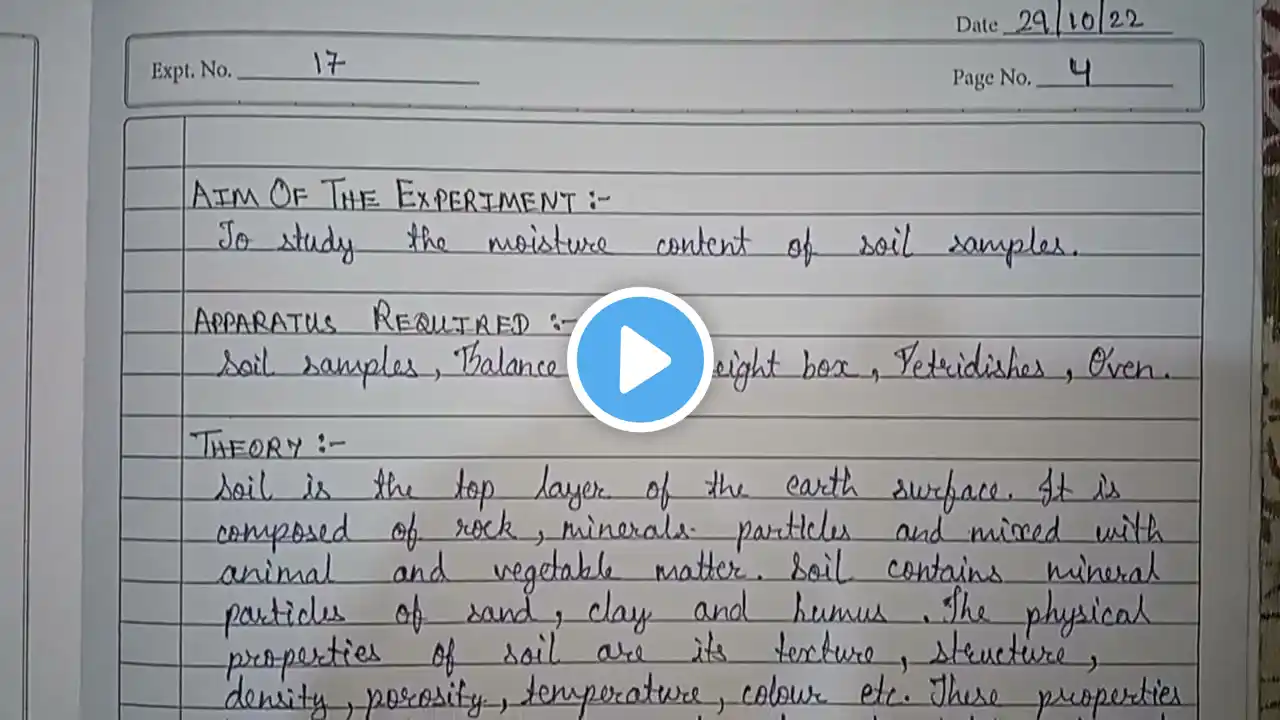 Date 29/10/22
Expt. No. 17
Page No. 4
AIM OF THE EXPERIMENT :-
To study the moisture content of soil samples.
APPARATUS REQUIRED :-
Soil samples, Balance eight box, Petridishes, Oven.
THEORY :-
Soil is the top layer of the earth surface. It is
composed of rock, minerals particles and mixed with
animal and vegetable matter. Soil contains mineral
particles of sand, clay and humus. The physical
properties of soil are its texture, structure,
density, porosity, temperature, colour etc. These properties